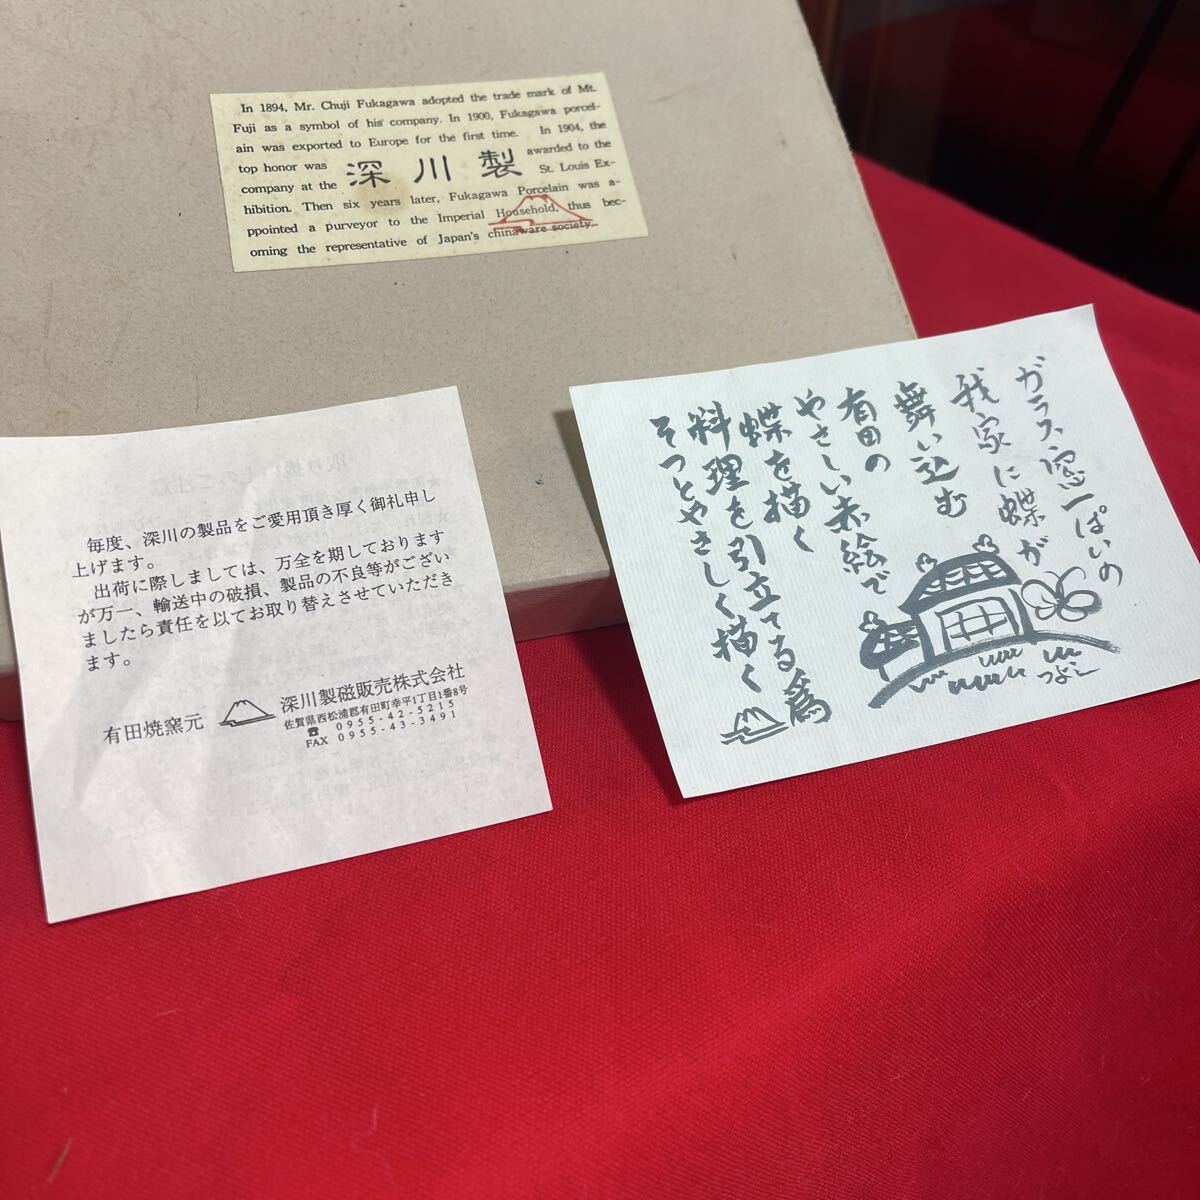 In 1894, Mr. Chuji Fukagawa adopted the trade mark of Mt.
Fuji as a symbol of his company. In 1900, Fukagawa porcel-
ain was exported to Europe for the first time. In 1904, the
top honor was awarded to the
深川製
company at the St. Louis Ex-
hibition. Then six years later, Fukagawa Porcelain was a-
ppointed a purveyor to the Imperial Household, thus bec-
oming the representative of Japan's chinaware society.
毎度、深川の製品をご愛用頂き厚く御礼申し
上げます。
出荷に際しましては、万全を期しております
が万一、輸送中の破損、製品の不良等がござい
ましたら責任を以てお取り替えさせていただき
ます。
有田焼窯元
深川製磁販売株式会社
佐賀県西松浦郡有田町幸平1丁目1番8号
☎ 0955-42-5215
FAX 0955-43-3491
ガラス窓一ぱいの
我家に蝶が
舞い込む
有田の
やさしい赤絵で
蝶を描く
料理を引立てる為
そっとやさしく描く
つよし